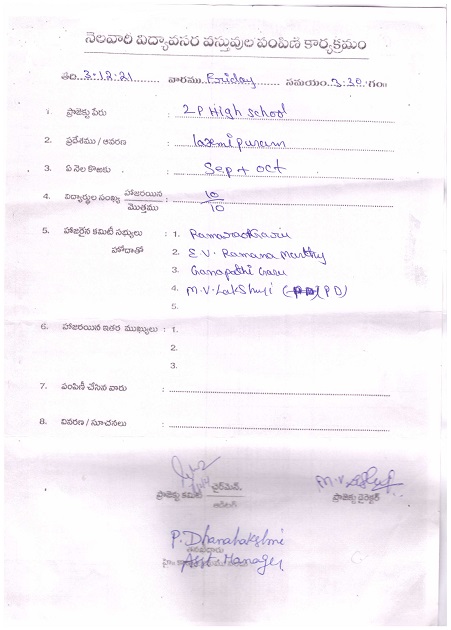 నెలవారి విద్యావసర వస్తువుల పంపిణి కార్యక్రమం
తేది 3.12.21 వారము Friday సమయం 3.30 గం॥
1. ప్రాజెక్టు పేరు : 2P High school
2. ప్రదేశము / ఆవరణ : laxmipuram
3. ఏ నెల కొఱకు : Sep + oct
4. విద్యార్థుల సంఖ్య హాజరయిన / మొత్తము : 10 / 10
5. హాజరైన కమిటీ సభ్యులు : 1. Ramarao Garu
హోదాతో 2. E.V. Ramana Marthy
3. Ganapathi Garu
4. M.V. Lakshmi (PD)
5.
6. హాజరయిన ఇతర ముఖ్యులు : 1.
2.
3.
7. పంపిణీ చేసిన వారు :
8. వివరణ / సూచనలు :
ప్రాజెక్టు కమిటీ ఛైర్మెన్, ప్రాజెక్టు డైరెక్టర్
P. Dhanalakshmi
Asst Manager